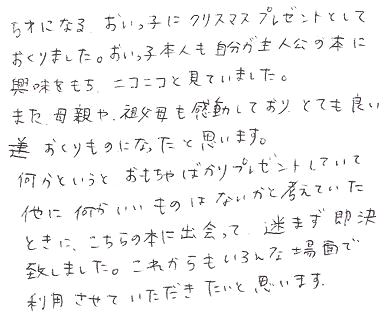 5才になる おいっ子に クリスマス プレゼントとして
おくりました。おいっ子本人も自分が主人公の本に
興味をもち、ニコニコと見ていました。
また 母親や、祖父母も感動しており とても良い
おくりものになったと思います。
何かというと おもちゃばかりプレゼントしていて
他に 何かいいものはないかと考えていた
ときに、こちらの本に出会って 迷まず即決
致しました。これからもいろんな場面で
利用させていただきたいと思います。